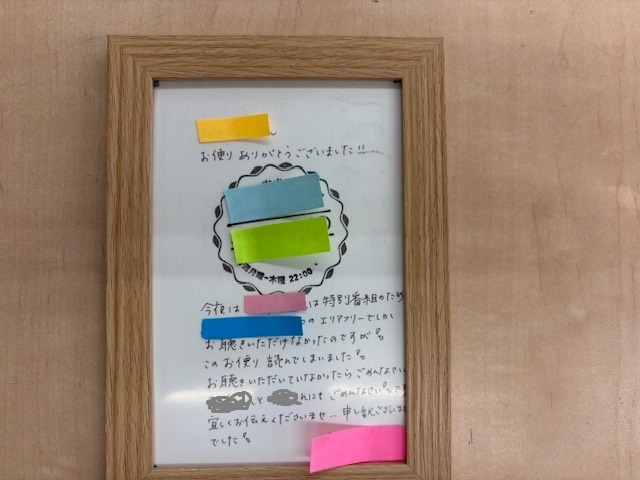 お便り ありがとうございました!!
月曜~木曜 22:00
今夜は は 特別番組のため
のエリアフリーでしか
お聴きいただけなかったのですが。
このお便り 読んでしまいました。
お聴きいただいていなかったらごめんなさい
と にも ごめんなさい。
宜しくお伝えくださいませ… 申し訳ございません
でした。